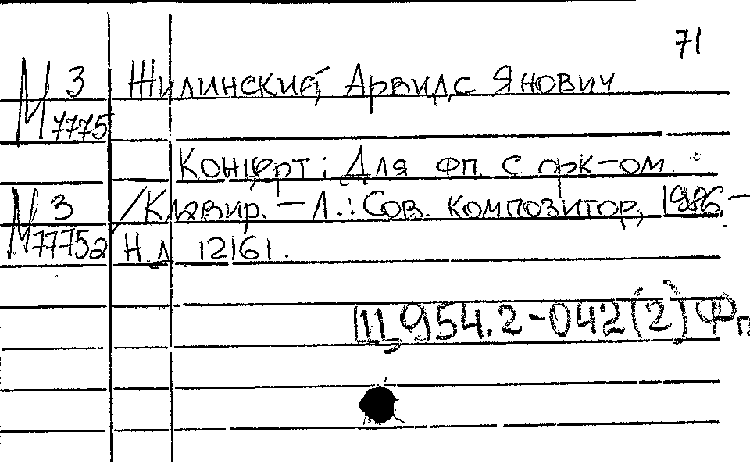 71
М 3 Жилинский Арвидс Янович
7775
Концерт: Для фп. с орк-ом.
М 3 /Клавир. – Л.: Сов. композитор, 1986. –
77752 Н.д. 12161.
Щ954.2-042(2)Фп